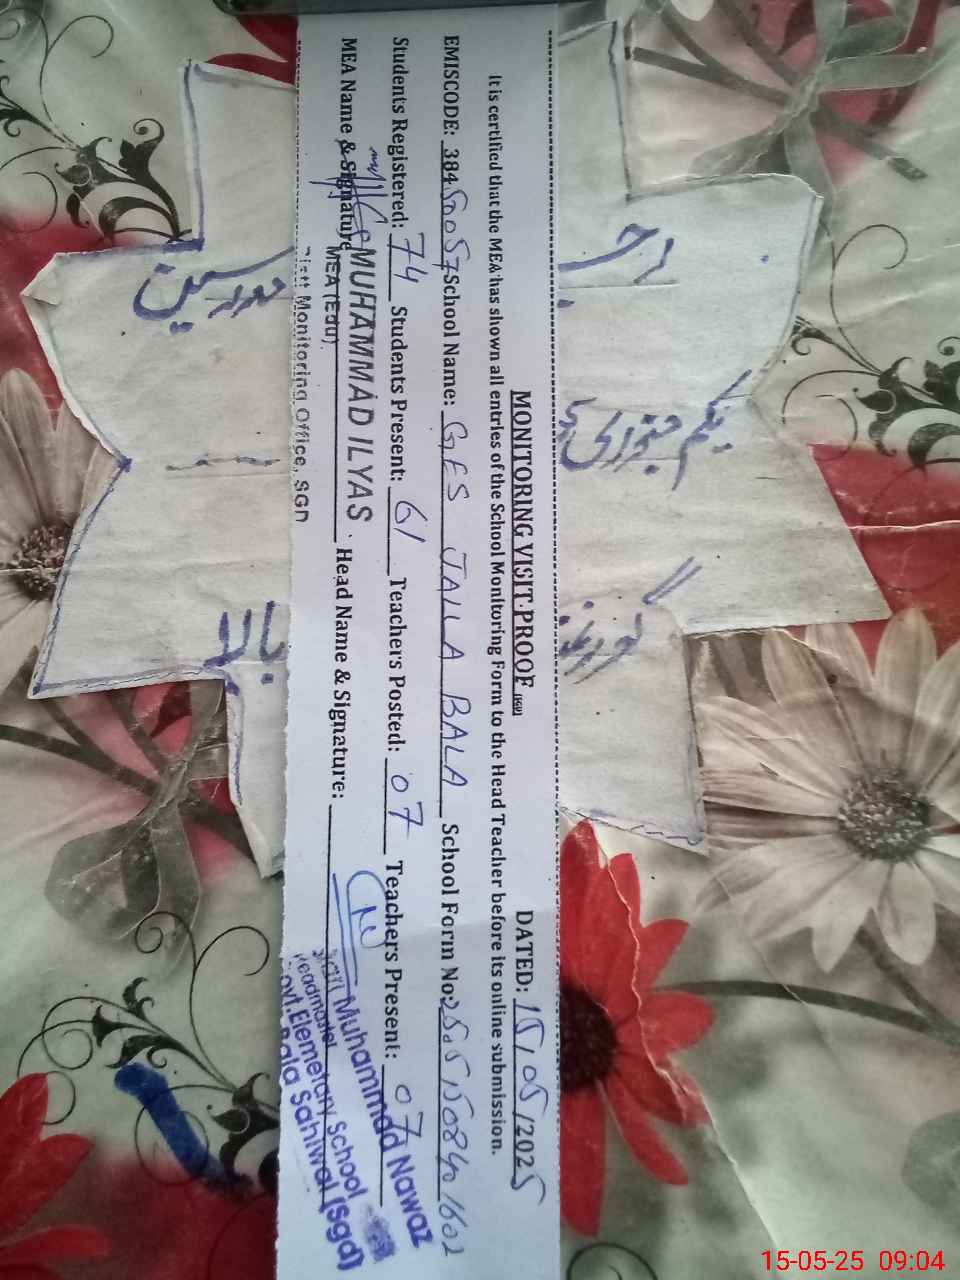 MONITORING VISIT PROOF (SGD) DATED: 15/05/2025
It is certified that the MEA has shown all entries of the School Monitoring Form to the Head Teacher before its online submission.
EMISCODE: 38450057 School Name: GES JALLA BALA School Form No
Students Registered: 74 Students Present: 61 Teachers Posted: 07 Teachers Present: 07
MEA Name & Signature Head Name & Signature:
MUHAMMAD ILYAS
MEA (Edu).
Monitoring Office, SGD
Muhammad Nawaz
Headmaster
Govt. Elemetary School
Bala Sahiwal (sgd)
یکم جنوری
15-05-25 09:04